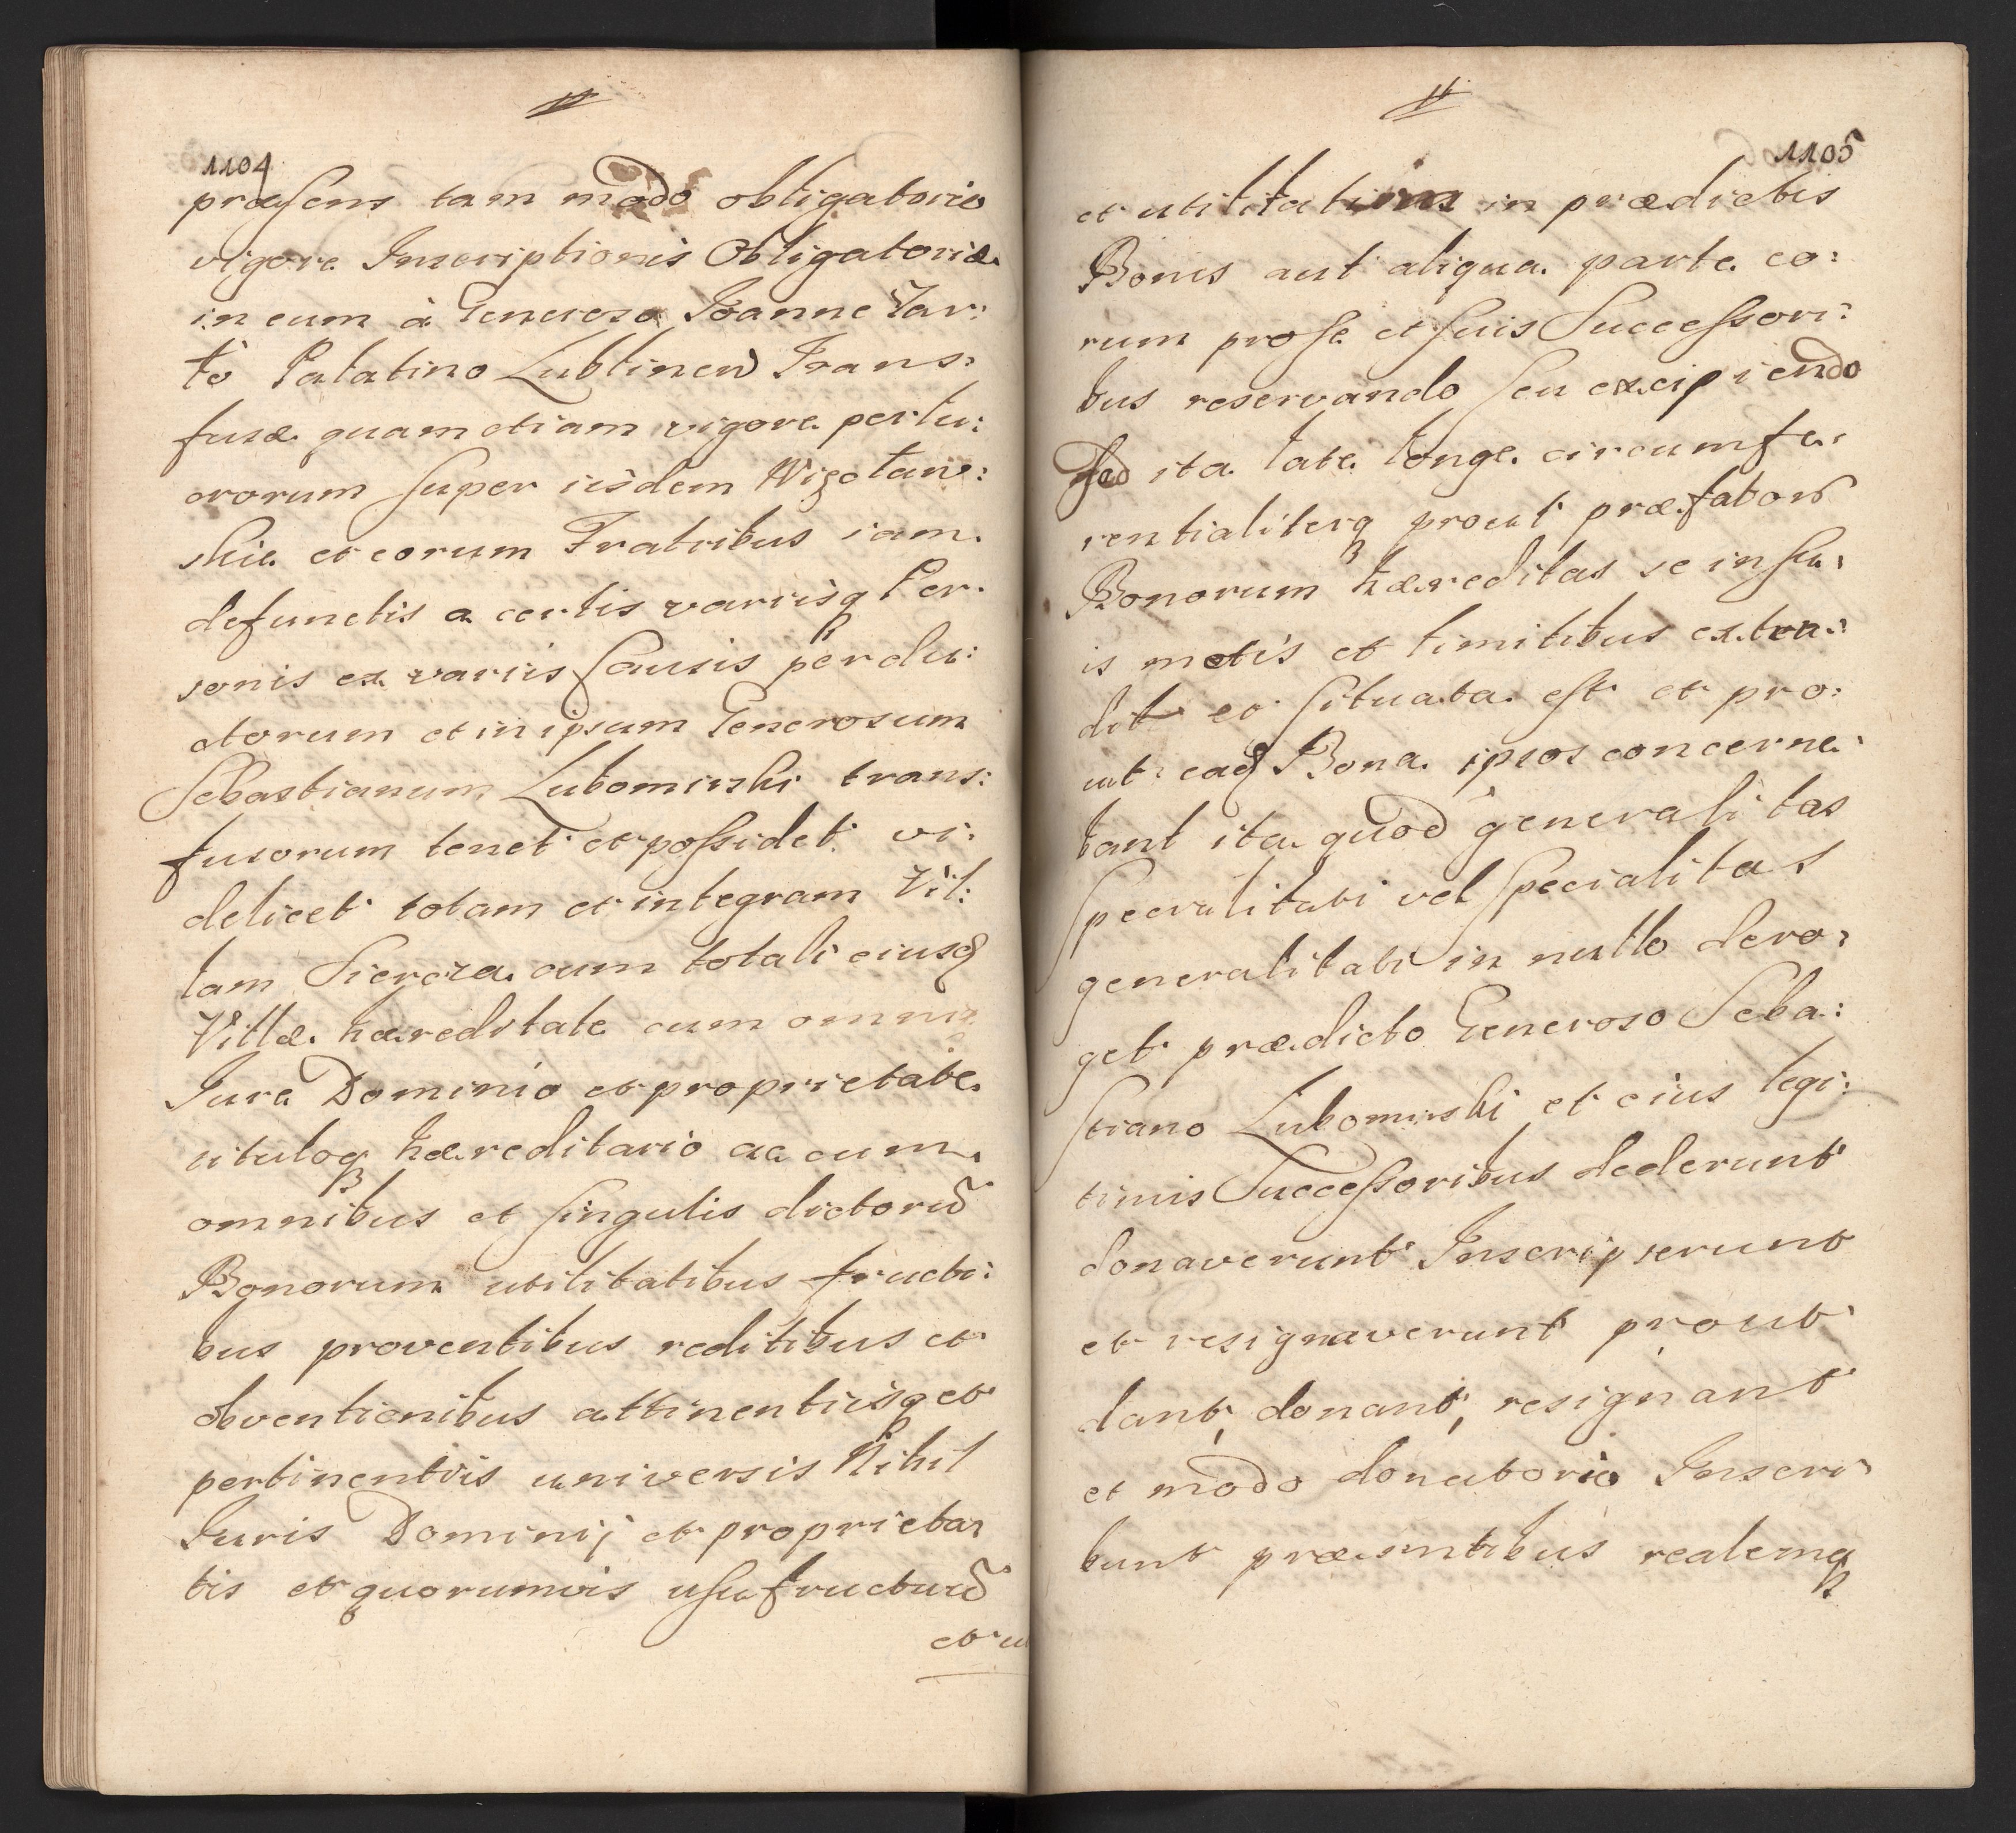 1104
præsens tam modo obligatorio
vigore Inscriptionis Obligatoriæ
in eum à Generoso Joanne Tar:
ło Palatino Lublinen Trans:
fusæ quam etiam vigore perlu:
crorum super iisdem Wizotaw:
skie et eorum Fratribus iam
defunctis a certis variisq Per.
sonis ex variis Causis perdu:
ctorum et in ipsum Generosum
Sebastianum Lubomirski trans:
fusorum tenet et possidet vi:
delicet totam et integram Vil:
lam Siercza cum totali eiusd
Villæ hæreditate cum omni
Jure Dominio et proprietate
tituloq hæreditario ac cum
omnibus et singulis dictorũ
Bonorum utilitatibus fructi:
bus proventibus reditibus et
obventionibus attinentiisq et
pertinentiis universis Nihil
Juris Dominij et proprieta:
tis et quorumvis usufructuũ
et u
1105
et utilitatum in prædictis
Bonis aut aliqua parte eo:
rum pro se et suis Successori:
bus reservando seu excipiendo
sed ita late longe circumfe:
rentialiterq prout præfator
Bonorum hæreditas se in su:
is metis et limitibus exten:
dit et situata est et pro:
ut ead Bona ipsos concerne:
bant ita quod generalitas
specialitati vel specialitas
generalitati in nullo dero:
get prædicto Generoso Seba:
stiano Lubomirski et eius legi:
timis Successoribus dederunt
donaverunt Inscripserunt
et resignaverunt prout
dant, donant, resignant
et modo donatorio Inscri:
bunt præsentibus realemq